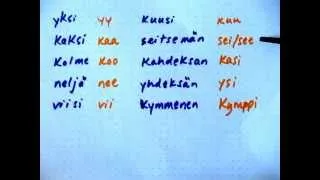 yksi yy kuusi kuu
kaksi kaa seitsemän sei/see
kolme koo kahdeksan kasi
neljä nee yhdeksän ysi
viisi vii kymmenen kymppi